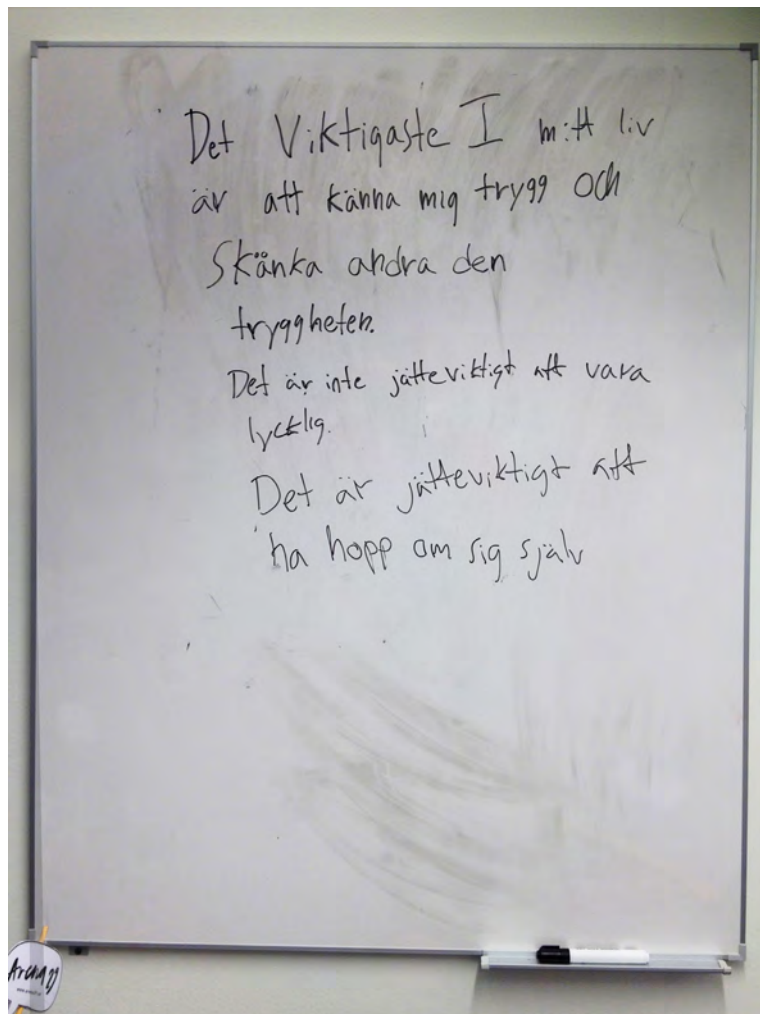 Det Viktigaste I mitt liv
är att känna mig trygg och
Skänka andra den
tryggheten.
Det är inte jätteviktigt att vara
lycklig.
Det är jätteviktigt att
ha hopp om sig själv